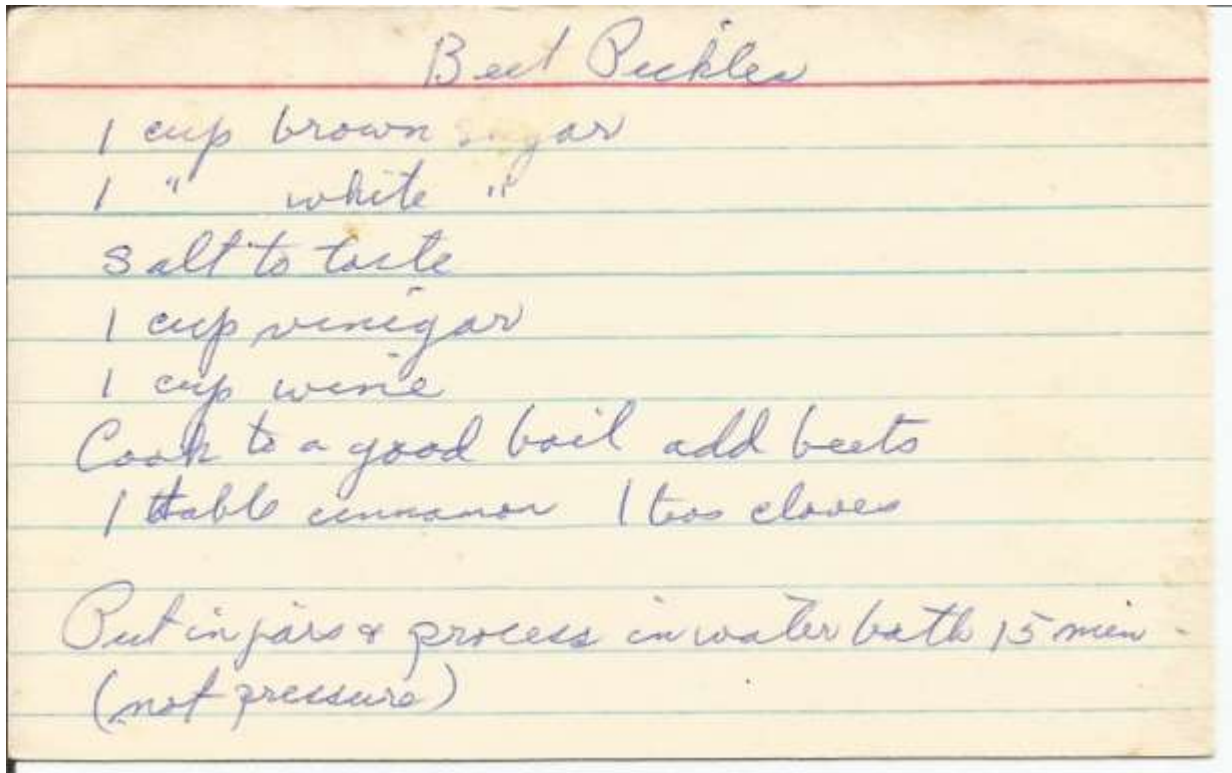 Beet Pickles
1 cup brown sugar
1 " white "
Salt to taste
1 cup vinigar
1 cup wine
Cook to a good boil add beets
1 table cinnamon 1 cloves
Put in jars & process in water bath 15 min -
(not pressure)